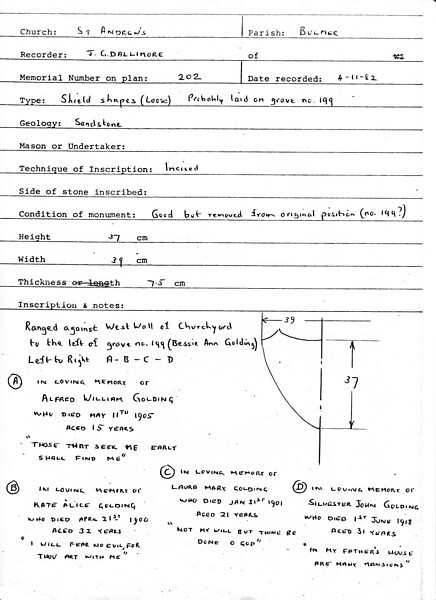 Church: St Andrew's Parish: Bulmer
Recorder: J. G. DALLIMORE of
Memorial Number on plan: 202 Date recorded: 4-11-82
Type: Shield shapes (Loose) Probably laid on grave no. 199
Geology: Sandstone
Mason or Undertaker:
Technique of Inscription: Incised
Side of stone inscribed:
Condition of monument: Good but removed from original position (no. 199?)
Height 37 cm
Width 39 cm
Thickness or length 7.5 cm
Inscription & notes:
Ranged against West Wall of Churchyard
to the left of grave no. 199 (Bessie Ann Golding)
Left to Right A - B - C - D
39
37
A IN LOVING MEMORY OF
ALFRED WILLIAM GOLDING
WHO DIED MAY 11TH 1905
AGED 15 YEARS
"THOSE THAT SEEK ME EARLY
SHALL FIND ME"
B IN LOVING MEMORY OF
KATE ALICE GOLDING
WHO DIED APRL 21ST 1900
AGED 32 YEARS
"I WILL FEAR NO EVIL, FOR
THOU ART WITH ME"
C IN LOVING MEMORY OF
LAURA MARY GOLDING
WHO DIED JAN 31ST 1901
AGED 21 YEARS
"NOT MY WILL BUT THINE BE
DONE O GOD"
D IN LOVING MEMORY OF
SILVESTER JOHN GOLDING
WHO DIED 1ST JUNE 1918
AGED 31 YEARS
"IN MY FATHER'S HOUSE
ARE MANY MANSIONS"